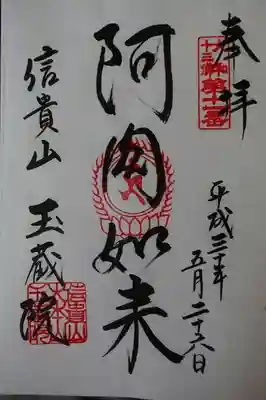 奉拝
十三佛第十一番
平成三十年
五月二十六日
阿閦如来
信貴山
玉蔵院